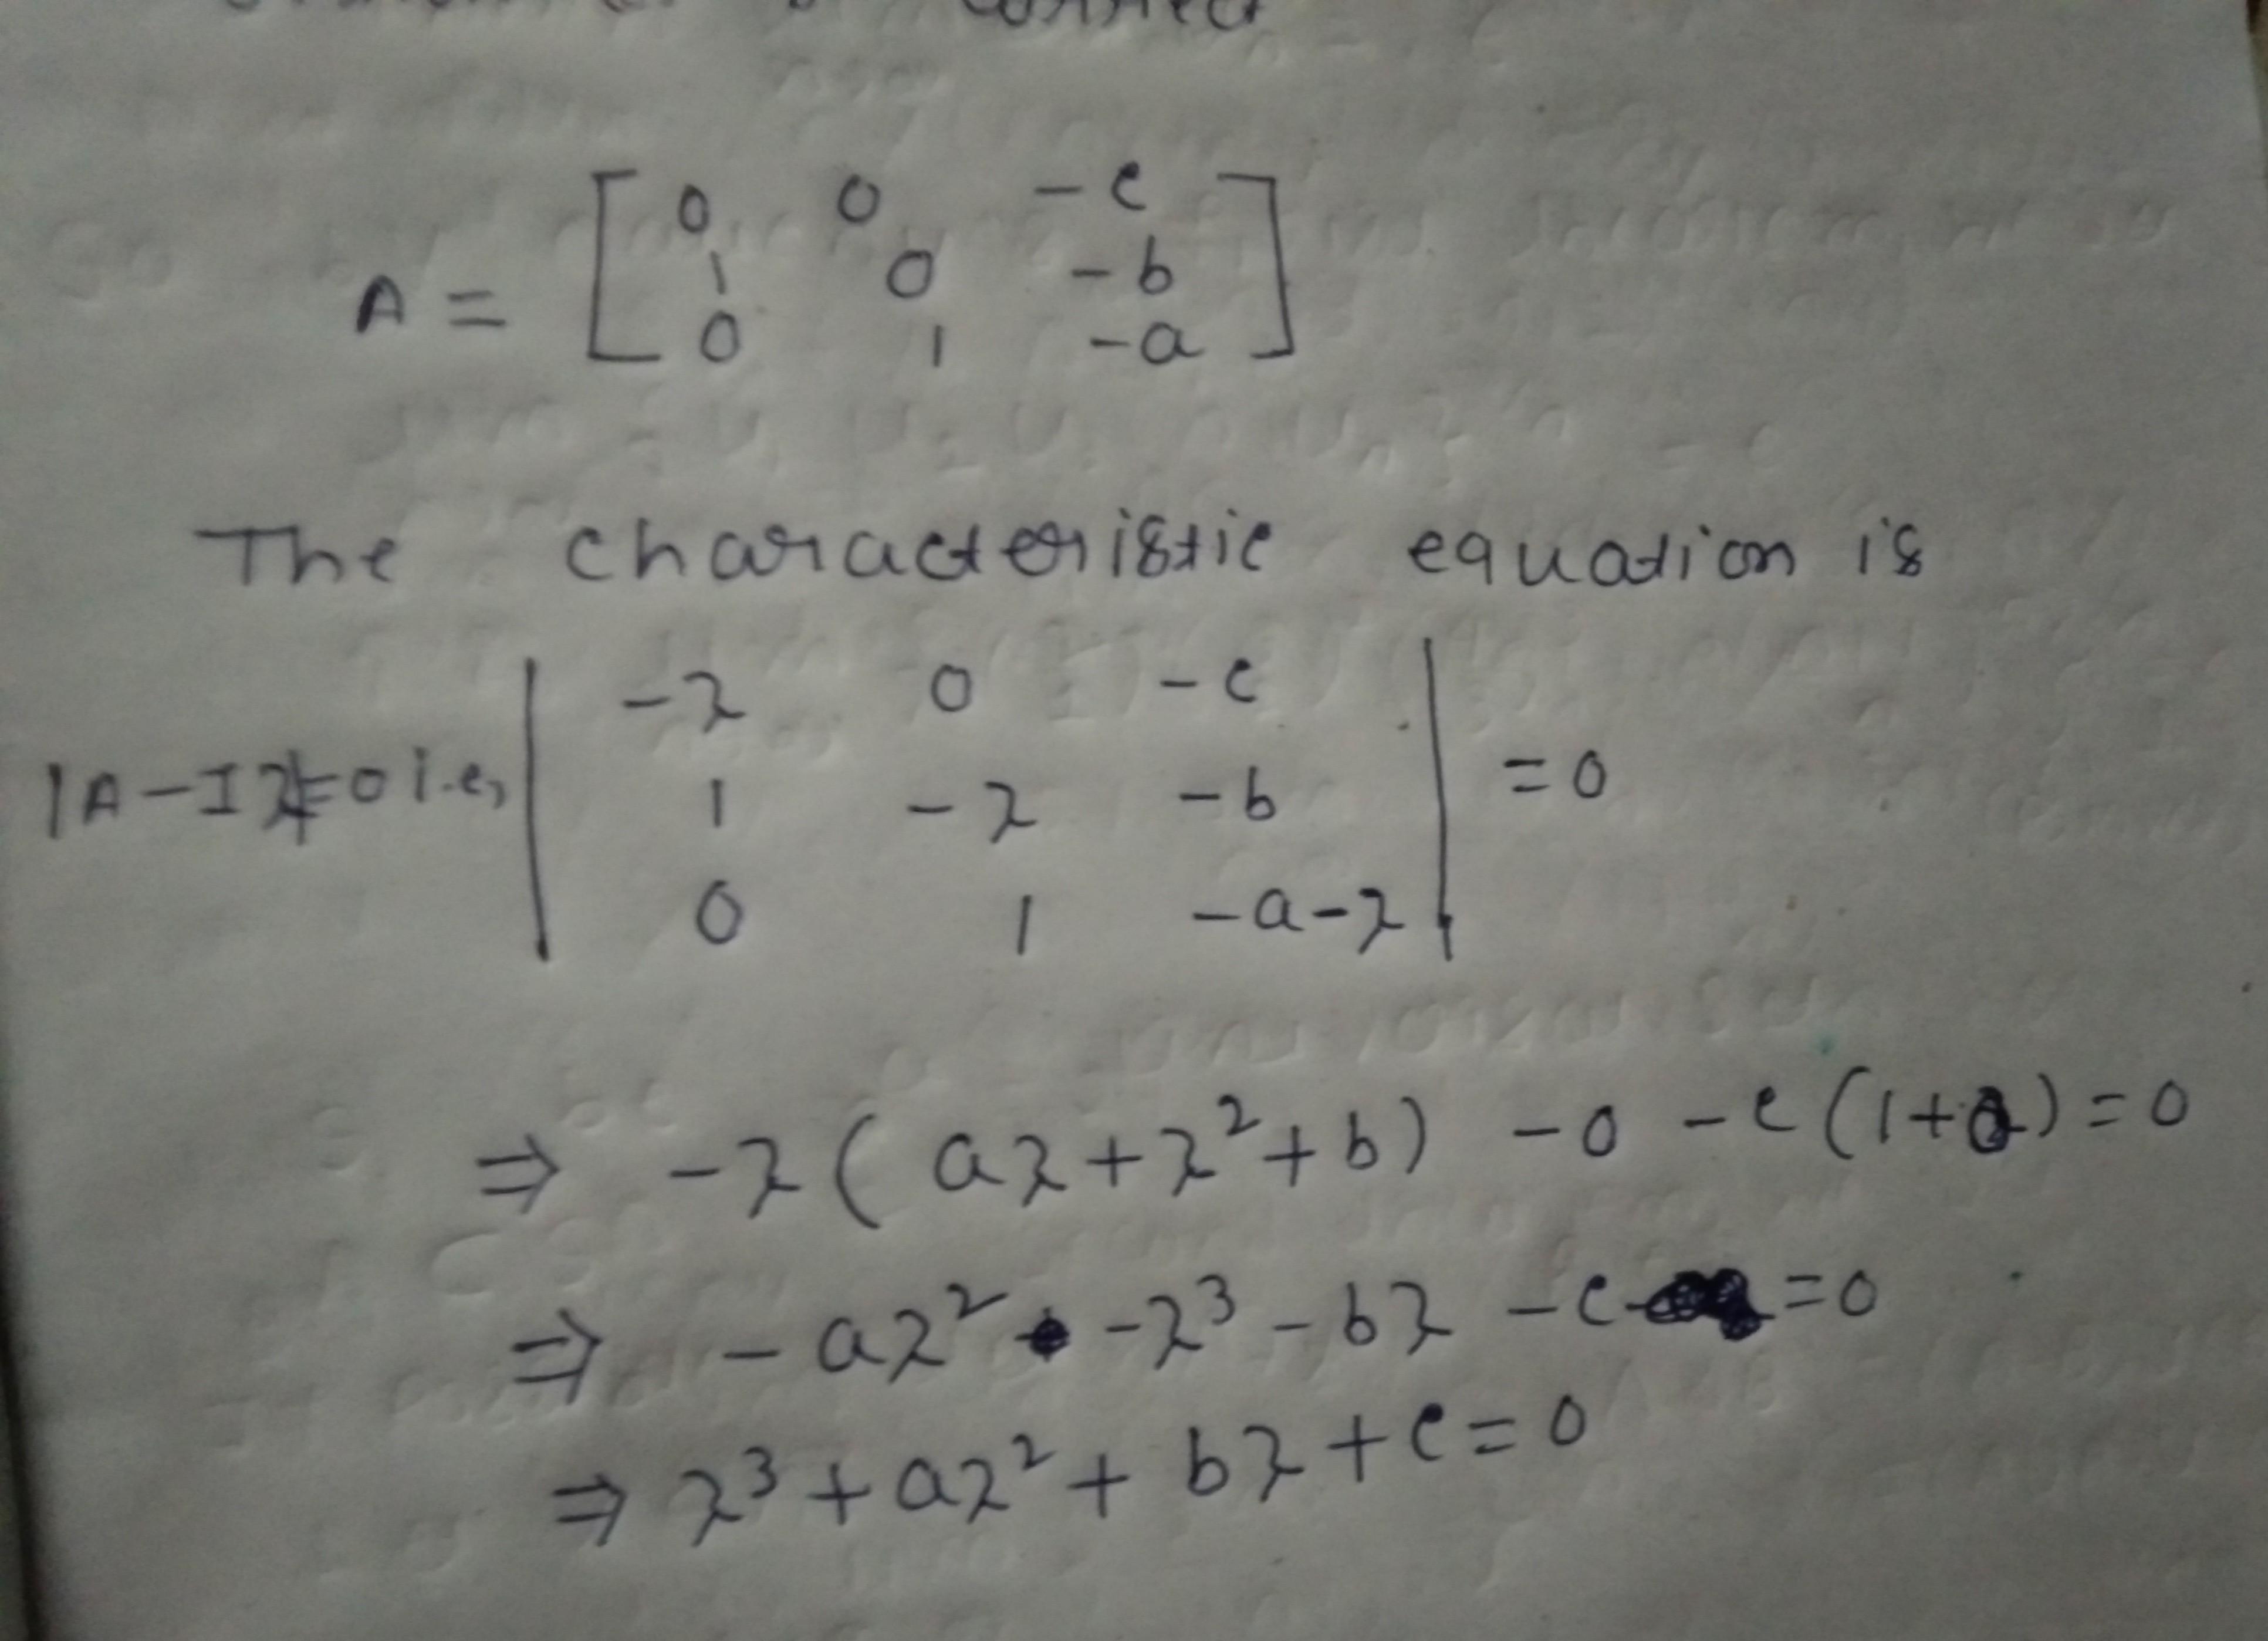 correct
A = [ 0 0 -c
1 0 -b
0 1 -a ]
The characteristic equation is
|A-Iλ|=0 i.e, | -λ 0 -c
1 -λ -b
0 1 -a-λ | =0
⇒ -λ( aλ+λ²+b) -0 -c(1+0)=0
⇒ -aλ² -λ³ -bλ -c =0
⇒ λ³+aλ²+ bλ+c=0